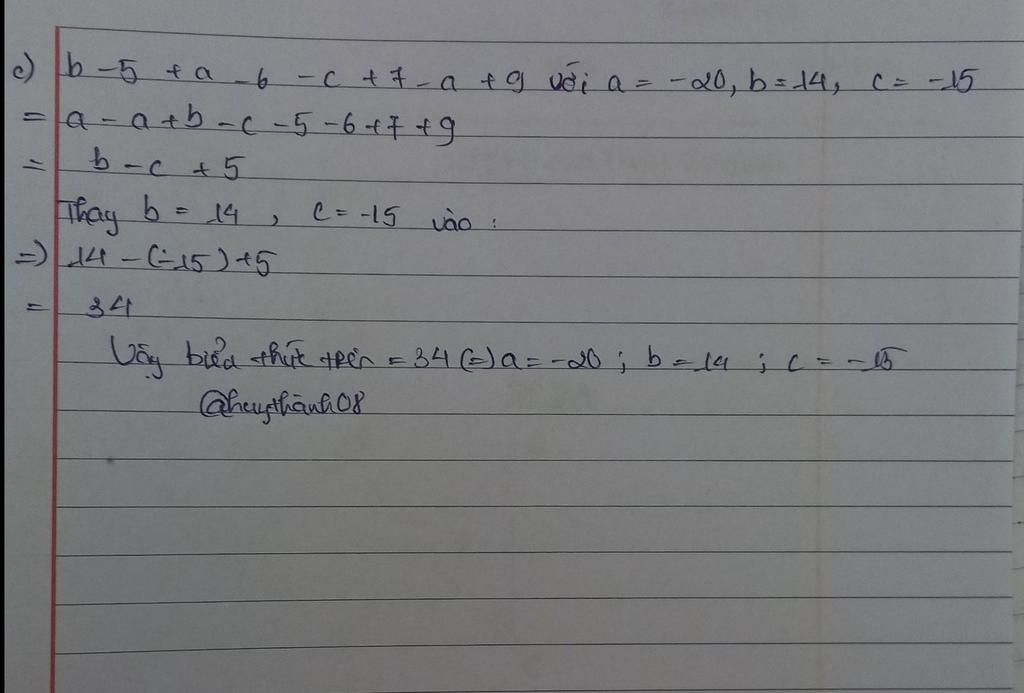 c) b - 5 + a - 6 - c + 7 - a + 9 với a = -20, b = 14, c = -15
= a - a + b - c - 5 - 6 + 7 + 9
= b - c + 5
Thay b = 14, c = -15 vào:
=) 14 - (-15) + 5
= 34
Vậy biểu thức trên = 34 (=) a = -20; b = 14; c = -15
@huythành08